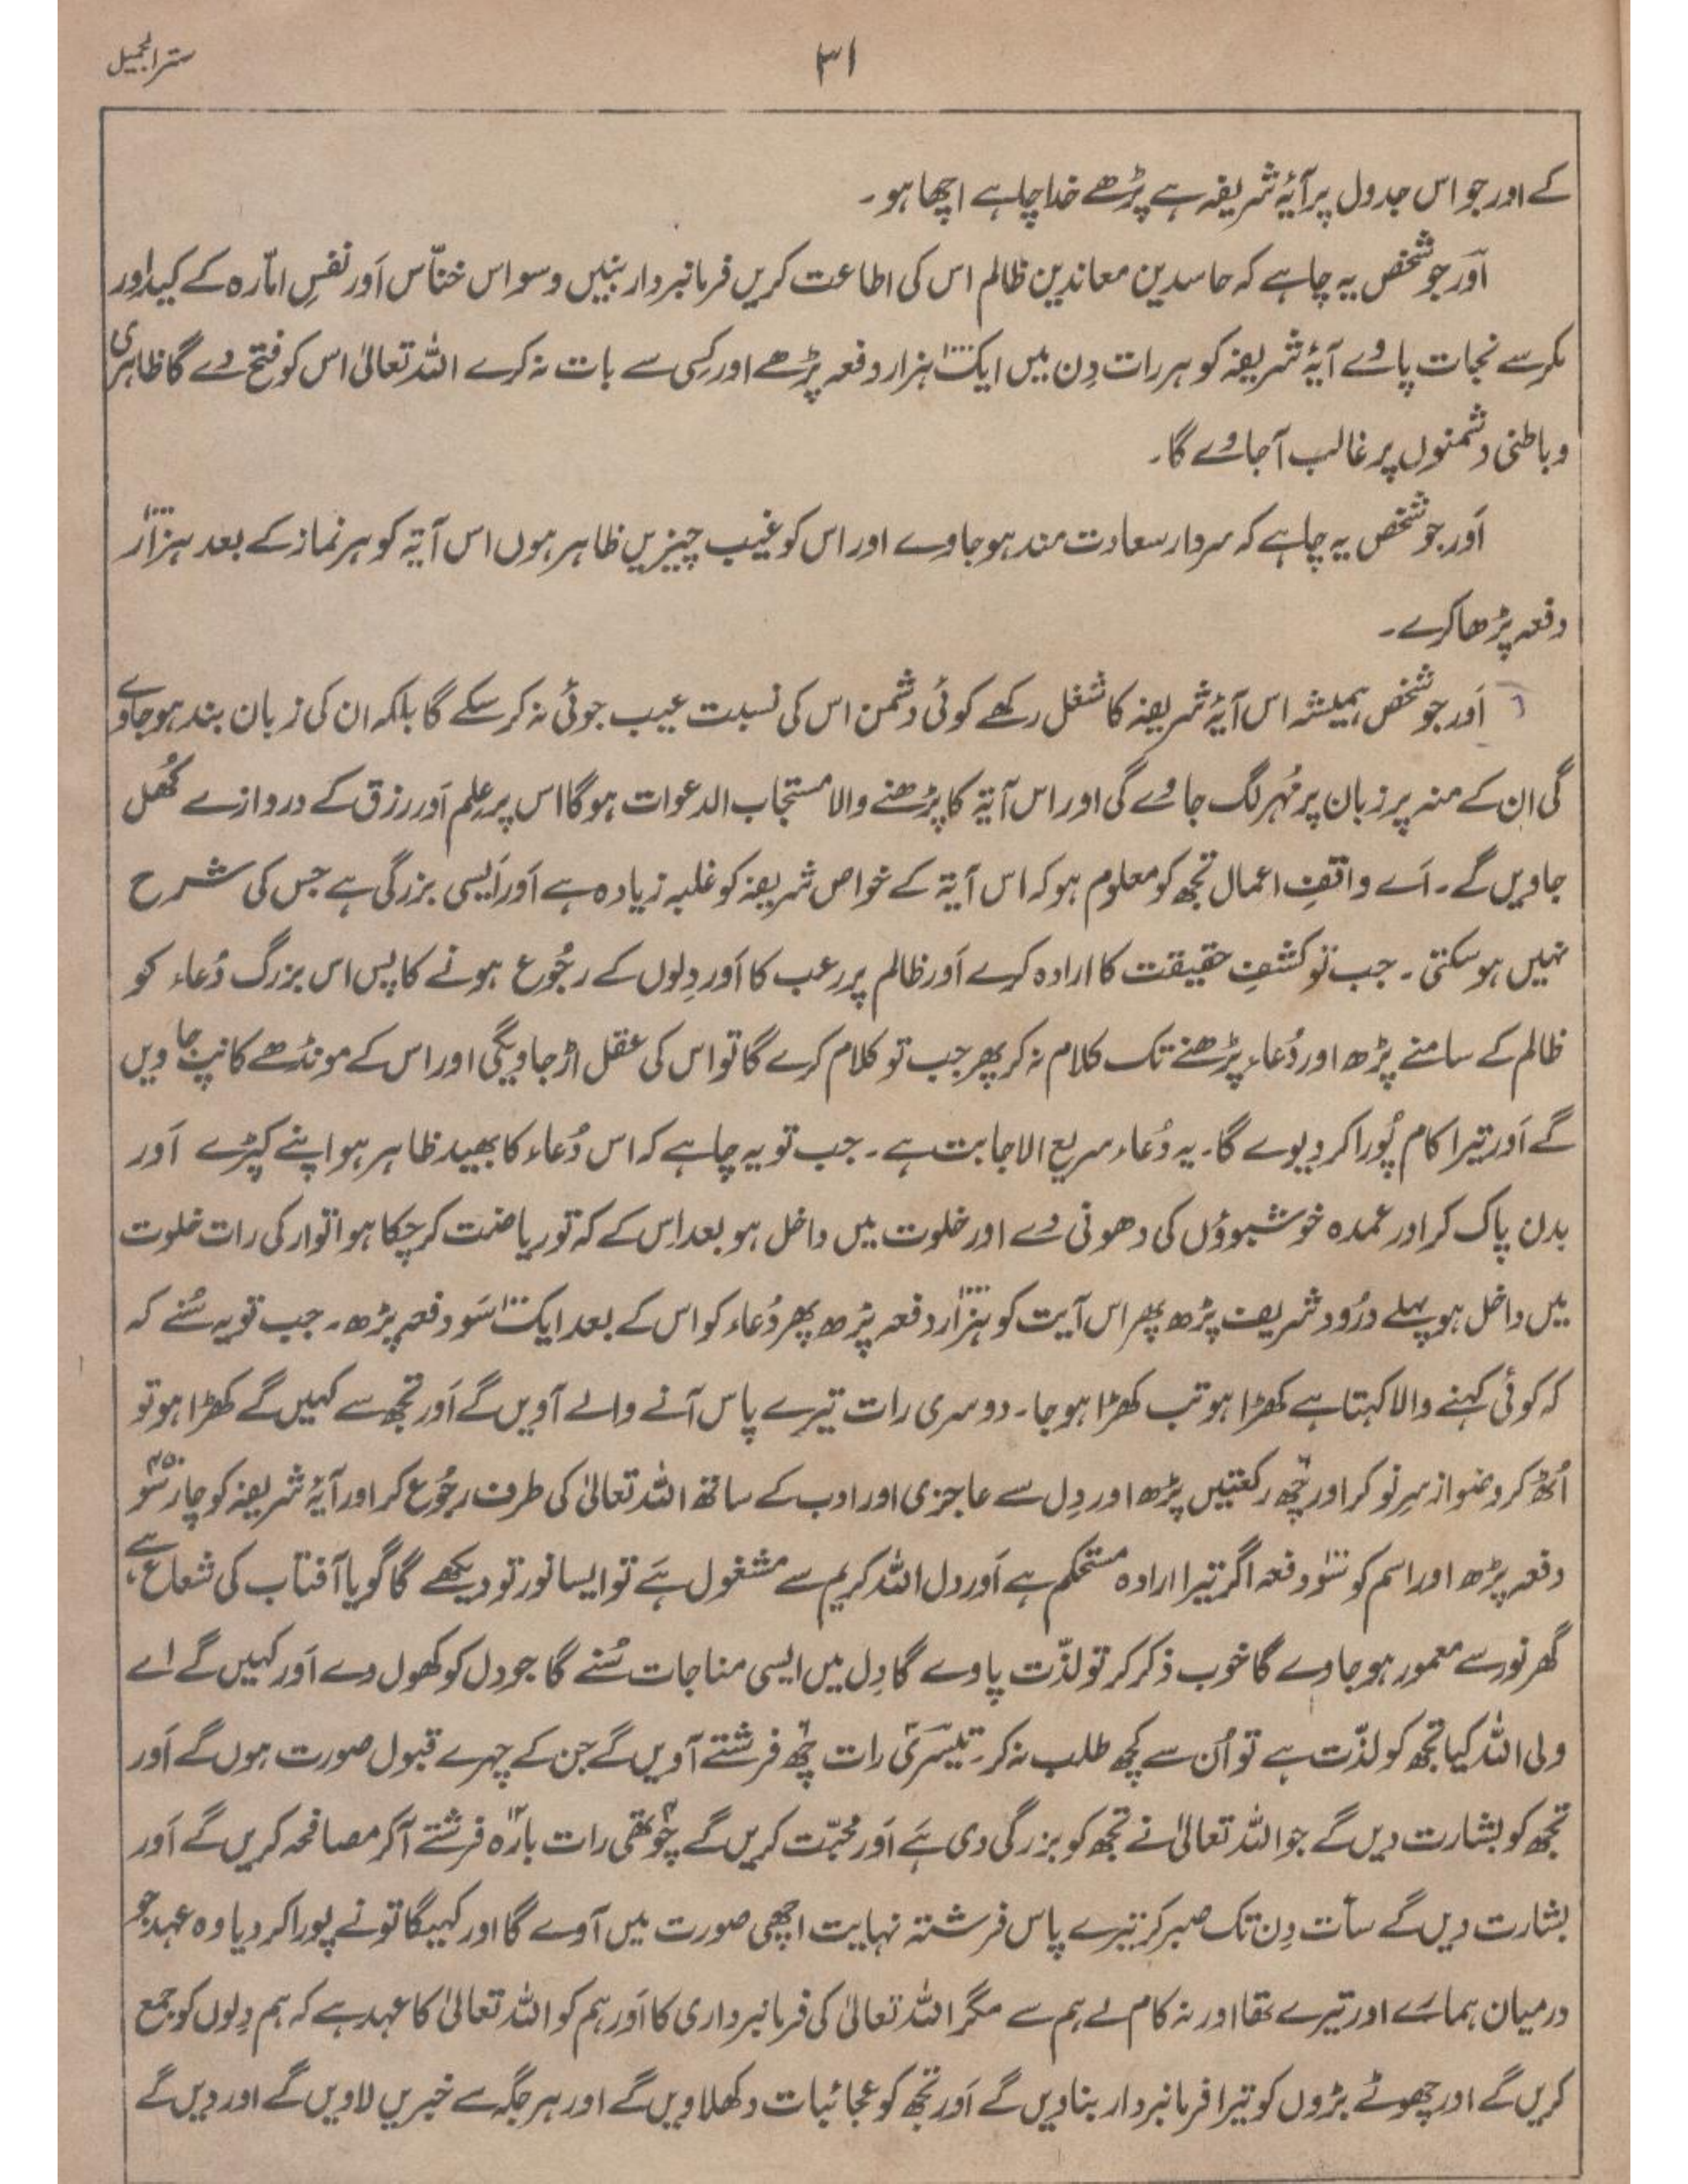 سترالجمیل
۳۱
کے اور جو اس جدول پر آیۂ شریفہ ہے پڑھے خدا چاہے اچھا ہو۔
اَور جو شخص یہ چاہے کہ حاسدین معاندین ظالم اس کی اطاعت کریں فرمانبردار بنیں وسواس خنّاس اَور نفسِ امّارہ کے کید اور
مکر سے نجات پاوے آیۂ شریفہ کو ہر رات دِن میں ایک ہزار ۱۰۰۰ دفعہ پڑھے اور کسی سے بات نہ کرے اللہ تعالیٰ اس کو فتح دے گا ظاہری
و باطنی دشمنوں پر غالب آجاوے گا۔
اَور جو شخص یہ چاہے کہ سردار سعادت مند ہو جاوے اور اس کو غیب چیزیں ظاہر ہوں اس آیۃ کو ہر نماز کے بعد ہزار ۱۰۰۰
دفعہ پڑھا کرے۔
اَور جو شخص ہمیشہ اس آیۂ شریفہ کا شغل رکھے کوئی دشمن اس کی نسبت عیب جوئی نہ کر سکے گا بلکہ ان کی زبان بند ہو جاوے
گی ان کے منہ پر زبان پر مُہر لگ جاوے گی اور اس آیۃ کا پڑھنے والا مستجاب الدعوات ہوگا اس پر علم اَور رزق کے دروازے کُھل
جاویں گے۔ اَے واقفِ اعمال تجھ کو معلوم ہو کہ اس آیۃ کے خواص شریفہ کو غلبہ زیادہ ہے اَور اَیسی بزرگی ہے جس کی شرح
نہیں ہو سکتی۔ جب تو کشفِ حقیقت کا ارادہ کرے اَور ظالم پر رعب کا اَور دِلوں کے رجُوع ہونے کا پس اس بزرگ دُعاء کو
ظالم کے سامنے پڑھ اور دُعاء پڑھنے تک کلام نہ کر پھر جب تو کلام کرے گا تو اس کی عقل اڑ جاویگی اور اس کے مونڈھے کانپ جاویں
گے اَور تیرا کام پُورا کر دیوے گا۔ یہ دُعاء سریع الاجابت ہے۔ جب تو یہ چاہے کہ اس دُعاء کا بھید ظاہر ہو اپنے کپڑے اَور
بدن پاک کر اور عمدہ خوشبوؤں کی دھونی دے اور خلوت میں داخل ہو بعد اِس کے کہ تو ریاضت کر چکا ہو اتوار کی رات خلوت
میں داخل ہو پہلے درُود شریف پڑھ پھر اس آیت کو ہزار ۱۰۰۰ دفعہ پڑھ پھر دُعاء کو اس کے بعد ایک سَو ۱۰۰ دفعہ پڑھ۔ جب تو یہ سُنے کہ
کہ کوئی کہنے والا کہتا ہے کھڑا ہو تب کھڑا ہو جا۔ دوسری رات تیرے پاس آنے والے آویں گے اَور تجھ سے کہیں گے کھڑا ہو تو
اُٹھ کر وضو از سرِ نو کر اور چھ رکعتیں پڑھ اور دِل سے عاجزی اور ادب کے ساتھ اللہ تعالیٰ کی طرف رجُوع کر اور آیۂ شریفہ کو چار سَو
دفعہ پڑھ اور اسم کو سَو ۱۰۰ دفعہ اگر تیرا ارادہ مستحکم ہے اَور دل اللہ کریم سے مشغول ہَے تو ایسا نور تو دیکھے گا گویا آفتاب کی شعاع ہے،
گھر نور سے معمور ہو جاوے گا خوب ذکر کر تو لذّت پاوے گا دِل میں ایسی مناجات سُنے گا جو دل کو کھول دے اَور کہیں گے اے
ولی اللہ کیا تجھ کو لذّت ہے تو اُن سے کچھ طلب نہ کر۔ تیسری ۳ رات چھ ۶ فرشتے آویں گے جن کے چہرے قبول صورت ہوں گے اَور
تجھ کو بشارت دیں گے جو اللہ تعالیٰ نے تجھ کو بزرگی دی ہَے اَور محبّت کریں گے چوتھی ۴ رات بارہ ۱۲ فرشتے آکر مصافحہ کریں گے اَور
بشارت دیں گے سات دِن تک صبر کر تیرے پاس فرشتہ نہایت اچھی صورت میں آوے گا اور کہیگا تو نے پورا کر دیا وہ عہد جو
درمیان ہمارے اور تیرے تھا اور نہ کام لے ہم سے مگر اللہ تعالیٰ کی فرمانبرداری کا اَور ہم کو اللہ تعالیٰ کا عہد ہے کہ ہم دِلوں کو جمع
کریں گے اور چھوٹے بڑوں کو تیرا فرمانبردار بنا دیں گے اَور تجھ کو عجائبات دکھلاویں گے اور ہر جگہ سے خبریں لاویں گے اور دیں گے